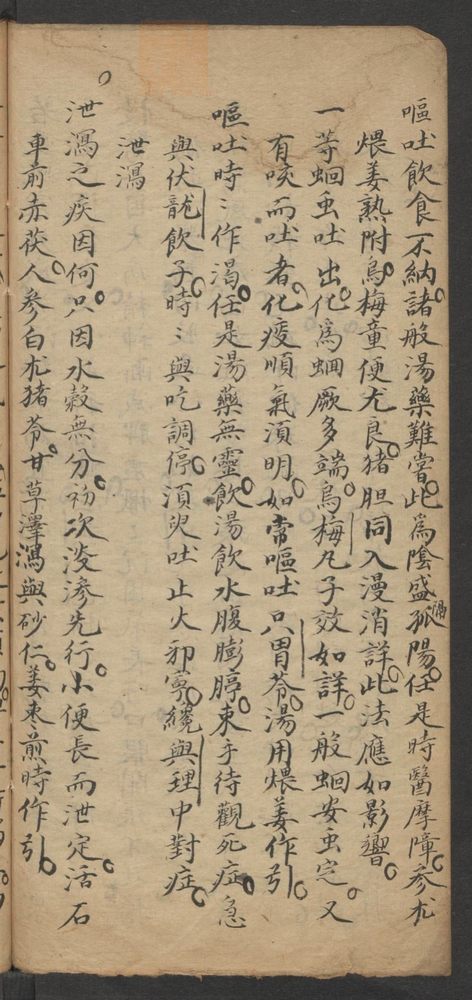 嘔吐飲食不納諸般湯藥難嘗此為陰盛孤陽任是時醫摩障參朮
煨姜熟附烏梅童便尤良猪胆同入漫消詳此法應如影響
一等蛔虫吐出化為蛔厥多端烏梅丸子效如詳一般蛔安虫定又
有咳而吐者化痰順氣須明如常嘔吐只胃苓湯用煨姜作引
嘔吐時〻作渴任是湯藥無靈飲湯飲水腹膨脝束手待觀死症急
與伏龍飲子時〻與吃調停須臾吐止火邪寧纔與理中對症
泄瀉
泄瀉之疾因何只因水穀無分初次淡滲先行小便長而泄定活石
車前赤茯人參白朮猪苓甘草澤瀉與砂仁姜枣煎時作引